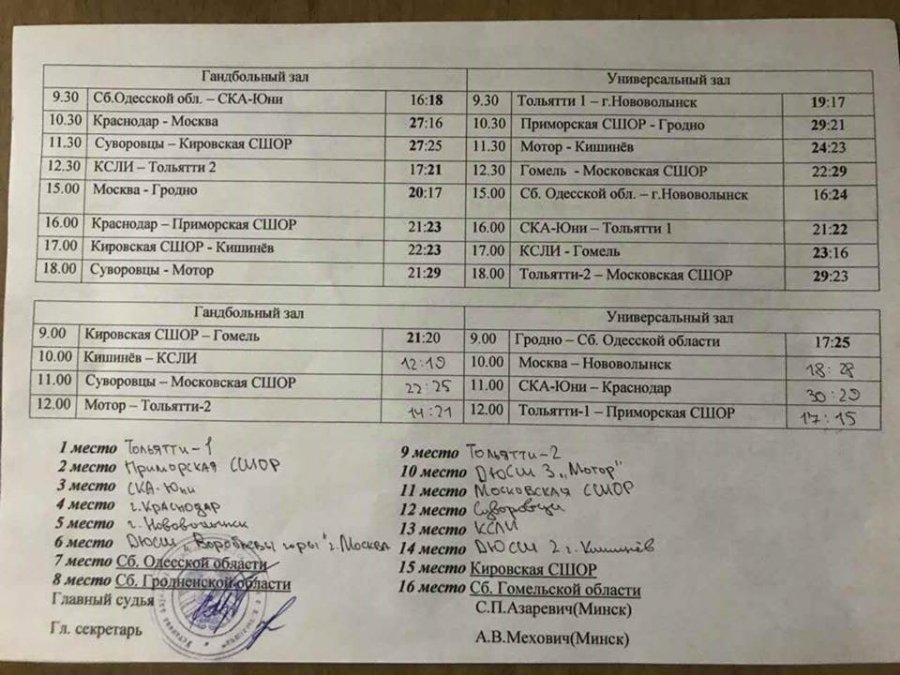 Гандбольный зал Универсальный зал
9.30 Сб.Одесской обл. – СКА-Юни 16:18 9.30 Тольятти 1 – г.Нововолынск 19:17
10.30 Краснодар - Москва 27:16 10.30 Приморская СШОР - Гродно 29:21
11.30 Суворовцы – Кировская СШОР 27:25 11.30 Мотор - Кишинёв 24:23
12.30 КСЛИ – Тольятти 2 17:21 12.30 Гомель - Московская СШОР 22:29
15.00 Москва - Гродно 20:17 15.00 Сб. Одесской обл. – г.Нововолынск 16:24
16.00 Краснодар – Приморская СШОР 21:23 16.00 СКА-Юни – Тольятти 1 21:22
17.00 Кировская СШОР - Кишинёв 22:23 17.00 КСЛИ - Гомель 23:16
18.00 Суворовцы - Мотор 21:29 18.00 Тольятти-2 – Московская СШОР 29:23
Гандбольный зал Универсальный зал
9.00 Кировская СШОР – Гомель 21:20 9.00 Гродно – Сб. Одесской области 17:25
10.00 Кишинёв – КСЛИ 12:19 10.00 Москва – Нововолынск 18:28
11.00 Суворовцы – Московская СШОР 22:25 11.00 СКА-Юни – Краснодар 30:29
12.00 Мотор – Тольятти-2 14:21 12.00 Тольятти-1 – Приморская СШОР 17:15
1 место Тольятти-1
2 место Приморская СШОР
3 место СКА-Юни
4 место г.Краснодар
5 место г.Нововолынск
6 место ДЮСШ "Воробьевы горы" г.Москва
7 место Сб. Одесской области
8 место Сб. Гродненской области
Главный судья
Гл. секретарь
9 место Тольятти-2
10 место ДЮСШ 3 „Мотор"
11 место Московская СШОР
12 место Суворовцы
13 место КСЛИ
14 место ДЮСШ 2 г.Кишинёв
15 место Кировская СШОР
16 место Сб. Гомельской области
С.П.Азаревич(Минск)
А.В.Мехович(Минск)